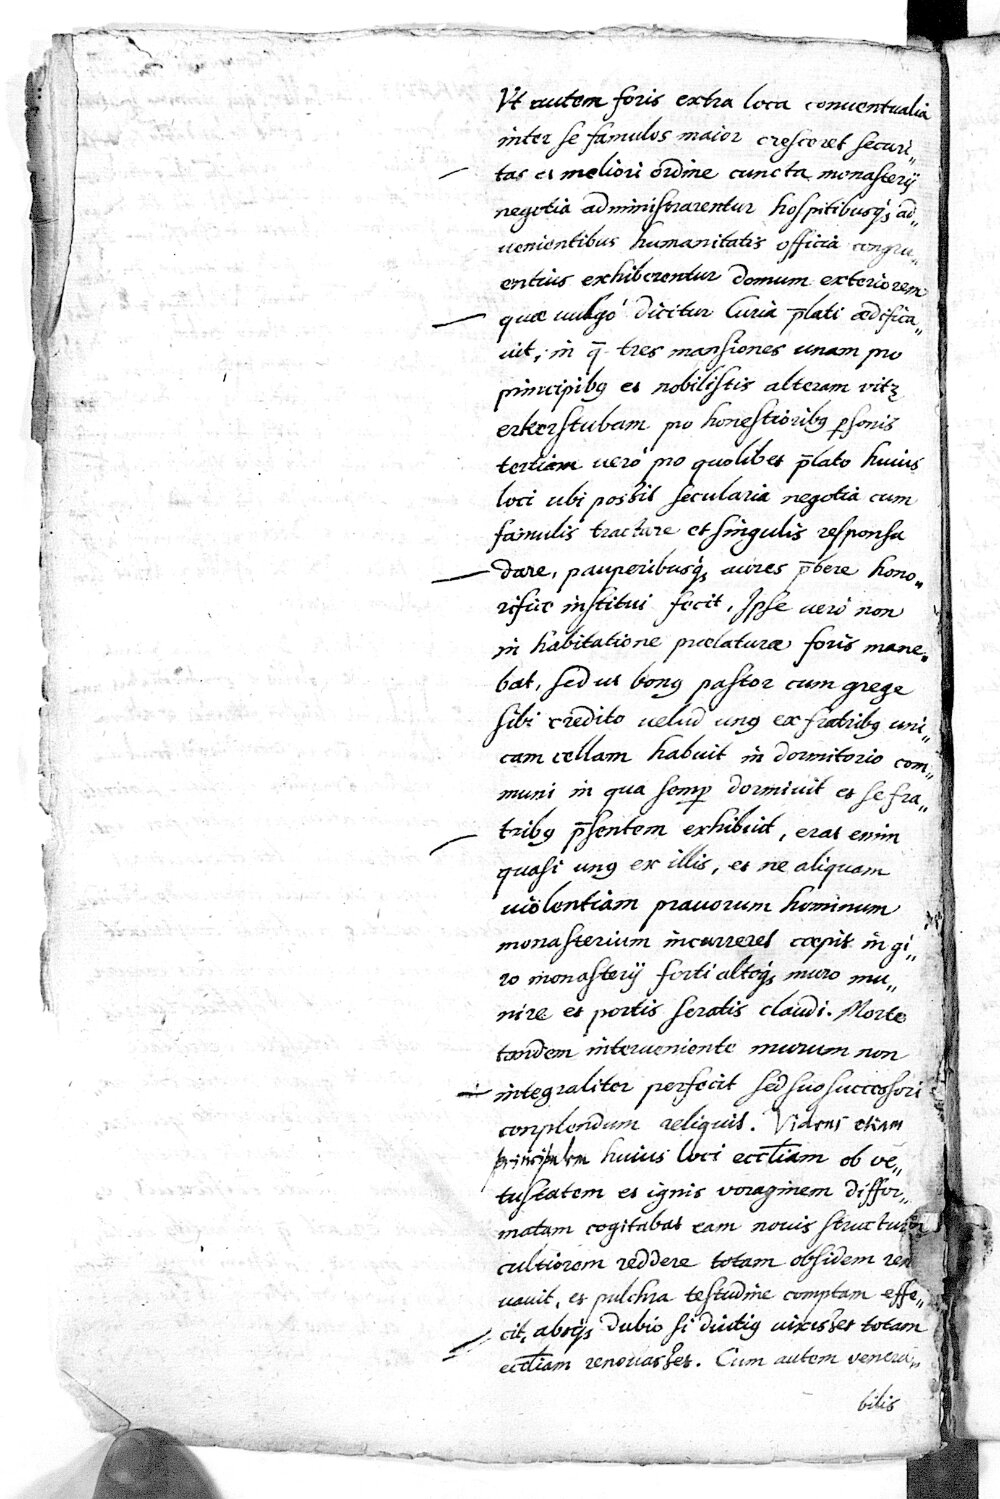 Vt autem foris extra loca conuentualia
inter se famulos maior cresceret securi„
tas et meliori ordine cuncta monasterij
negotia administrarentur hospitibusq́ꝫ ad„
uenientibus humanitatis officia congru„
entius exhiberentur domum exteriorem
quæ uulgó dicitur Curia p̄lati ædifica„
uit, in q̄ tres mansiones unam pro
principibꝯ et nobilistis alteram vitꝫ
erkerstubam pro honestioribꝯ ꝑsonis
tertiam uerò pro quolibet p̄lato huius
loci ubi possit secularia negotia cum
famulis tractare et singulis responsa
dare, pauperibusq́ꝫ aures p̄bere hono„
rificè institui fecit. Ipse uerò non
in habitatione prælaturæ foris mane„
bat, sed ut bonꝯ pastor cum grege
sibi credito uelud unꝯ ex fratribꝯ uni„
cam cellam habuit in dormitorio com„
muni in qua semꝑ dormiuit et se fra„
tribꝯ p̄sentem exhibuit, erat enim
quasi unꝯ ex illis, et ne aliquam
uiolentiam prauorum hominum
monasterium incurreret cœpit in gi„
ro monasterij forti altoq́ꝫ muro mu„
nire et portis seratis claudi. Morte
tandem interueniente murum non
integraliter perfecit sed suo successori
conplendum reliquit. Videns etiam
principalem huius loci eccl̄iam ob ve„
tustatem et ignis voraginem diffor„
matam cogitabat eam nouis structuris
cultiorem reddere totam obsidem ren
uauit, et pulchra testudine comptam effe„
cit, absq́ꝫ dubio si diutiꝯ uixisset totam
eccl̄iam renouasset. Cum autem venera„
bilis